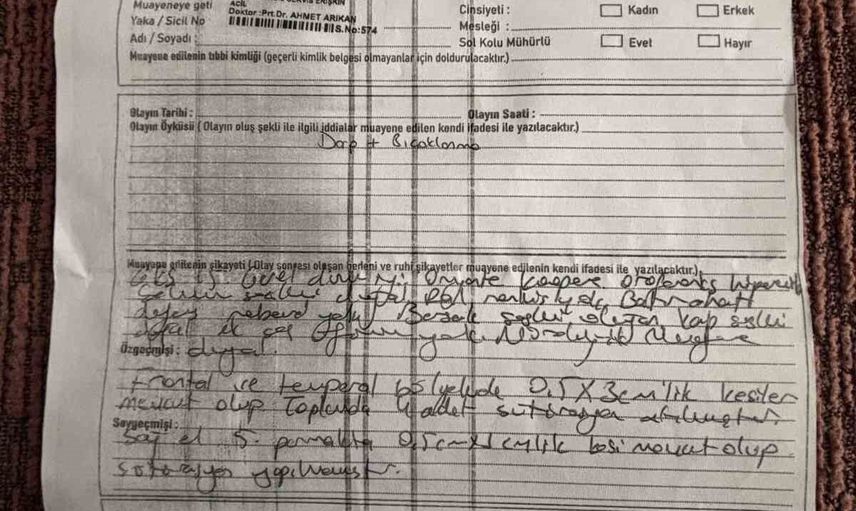 Muayeneye geti
ACİL
Doktor :Prt.Dr. AHMET ARIKAN
Yaka / Sicil No
S.No:574
Adı / Soyadı :
Cinsiyeti :
Kadın
Erkek
Mesleği :
Sol Kolu Mühürlü
Evet
Hayır
Muayene edilenin tıbbi kimliği (geçerli kimlik belgesi olmayanlar için doldurulacaktır.)
Olayın Tarihi :
Olayın Saati :
Olayın Öyküsü ( Olayın oluş şekli ile ilgili iddialar muayene edilen kendi ifadesi ile yazılacaktır.)
Darp + Bıçaklanma
Muayene edilenin şikayeti ( Olay sonrası oluşan bedeni ve ruhi şikayetler muayene edilenin kendi ifadesi ile yazılacaktır.)
GKS 15 Genel durum iyi Oryante koopere
doğal Batın rahat
defans rebound yok kap
doğal ek Nörolojik Muayene
Özgeçmişi : doğal.
Frontal ve temporal bölgelerde 0,5X3cm'lik kesiler
mevcut olup Toplamda 4 adet suturasyon atılmıştır.
Soygeçmişi :
Sağ el 5. parmakta 0,5cmX1cmlik kesi mevcut olup
suturasyon yapılmamıştır.